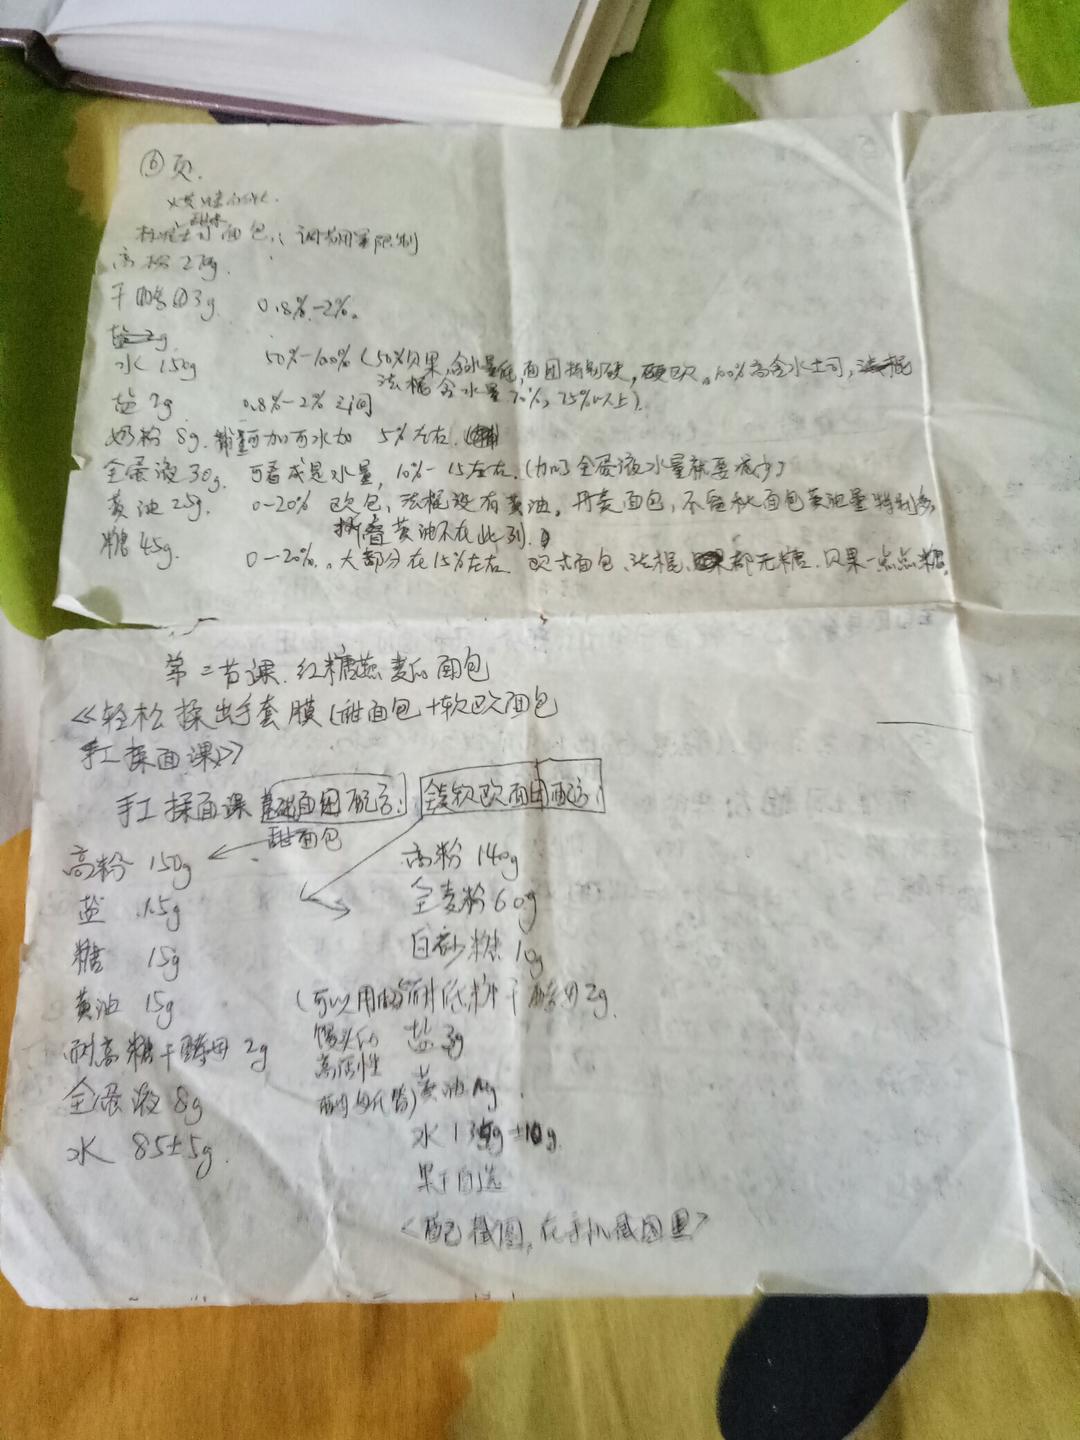 ⑥页.
甜味
土司面包,(调糊军限制
高粉 2 g.
干酵母3g. 0.8%-2%.
盐2g
水 150g 50%-100%(50%贝果,含水量低,面团特别硬,硬欧。100%高含水土司,法棍
法棍含水量70%,75%以上).
盐 2g 0.8%-2%之间
奶粉 8g. 可加可不加 5%左右.
全蛋液 30g. 可看成是水量,10%-15左右.(加了全蛋液水量就要减少)
黄油 25g. 0-20% 欧包,法棍没有黄油,丹麦面包,不包秋面包黄油量特别多,
折叠黄油不在此列.
糖 45g. 0-20%.大部分在15%左右 欧式面包、法棍、都无糖.贝果一点点糖.
第二节课.红糖燕麦面包
《轻松揉出手套膜(甜面包+软欧面包
手工揉面课》
手工揉面课 基础面团配方: 全麦软欧面团配方:
甜面包
高粉 150g
盐 1.5g
糖 15g
黄油 15g
耐高糖干酵母 2g
全蛋液 8g
水 85±5g.
高粉 140g
全麦粉 60g
白砂糖 10g
(可以用 耐低糖干酵母 2g.
馒头的 盐 3g
高活性
酵母代替) 黄油 g.
水 13 g±10g.
果干自选
<自己截图,在手机截图里>